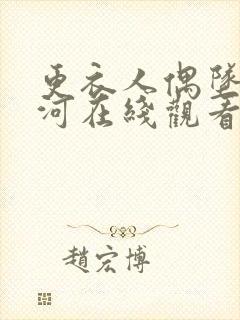 更衣人偶墜
河在綫觀看
趙宏博